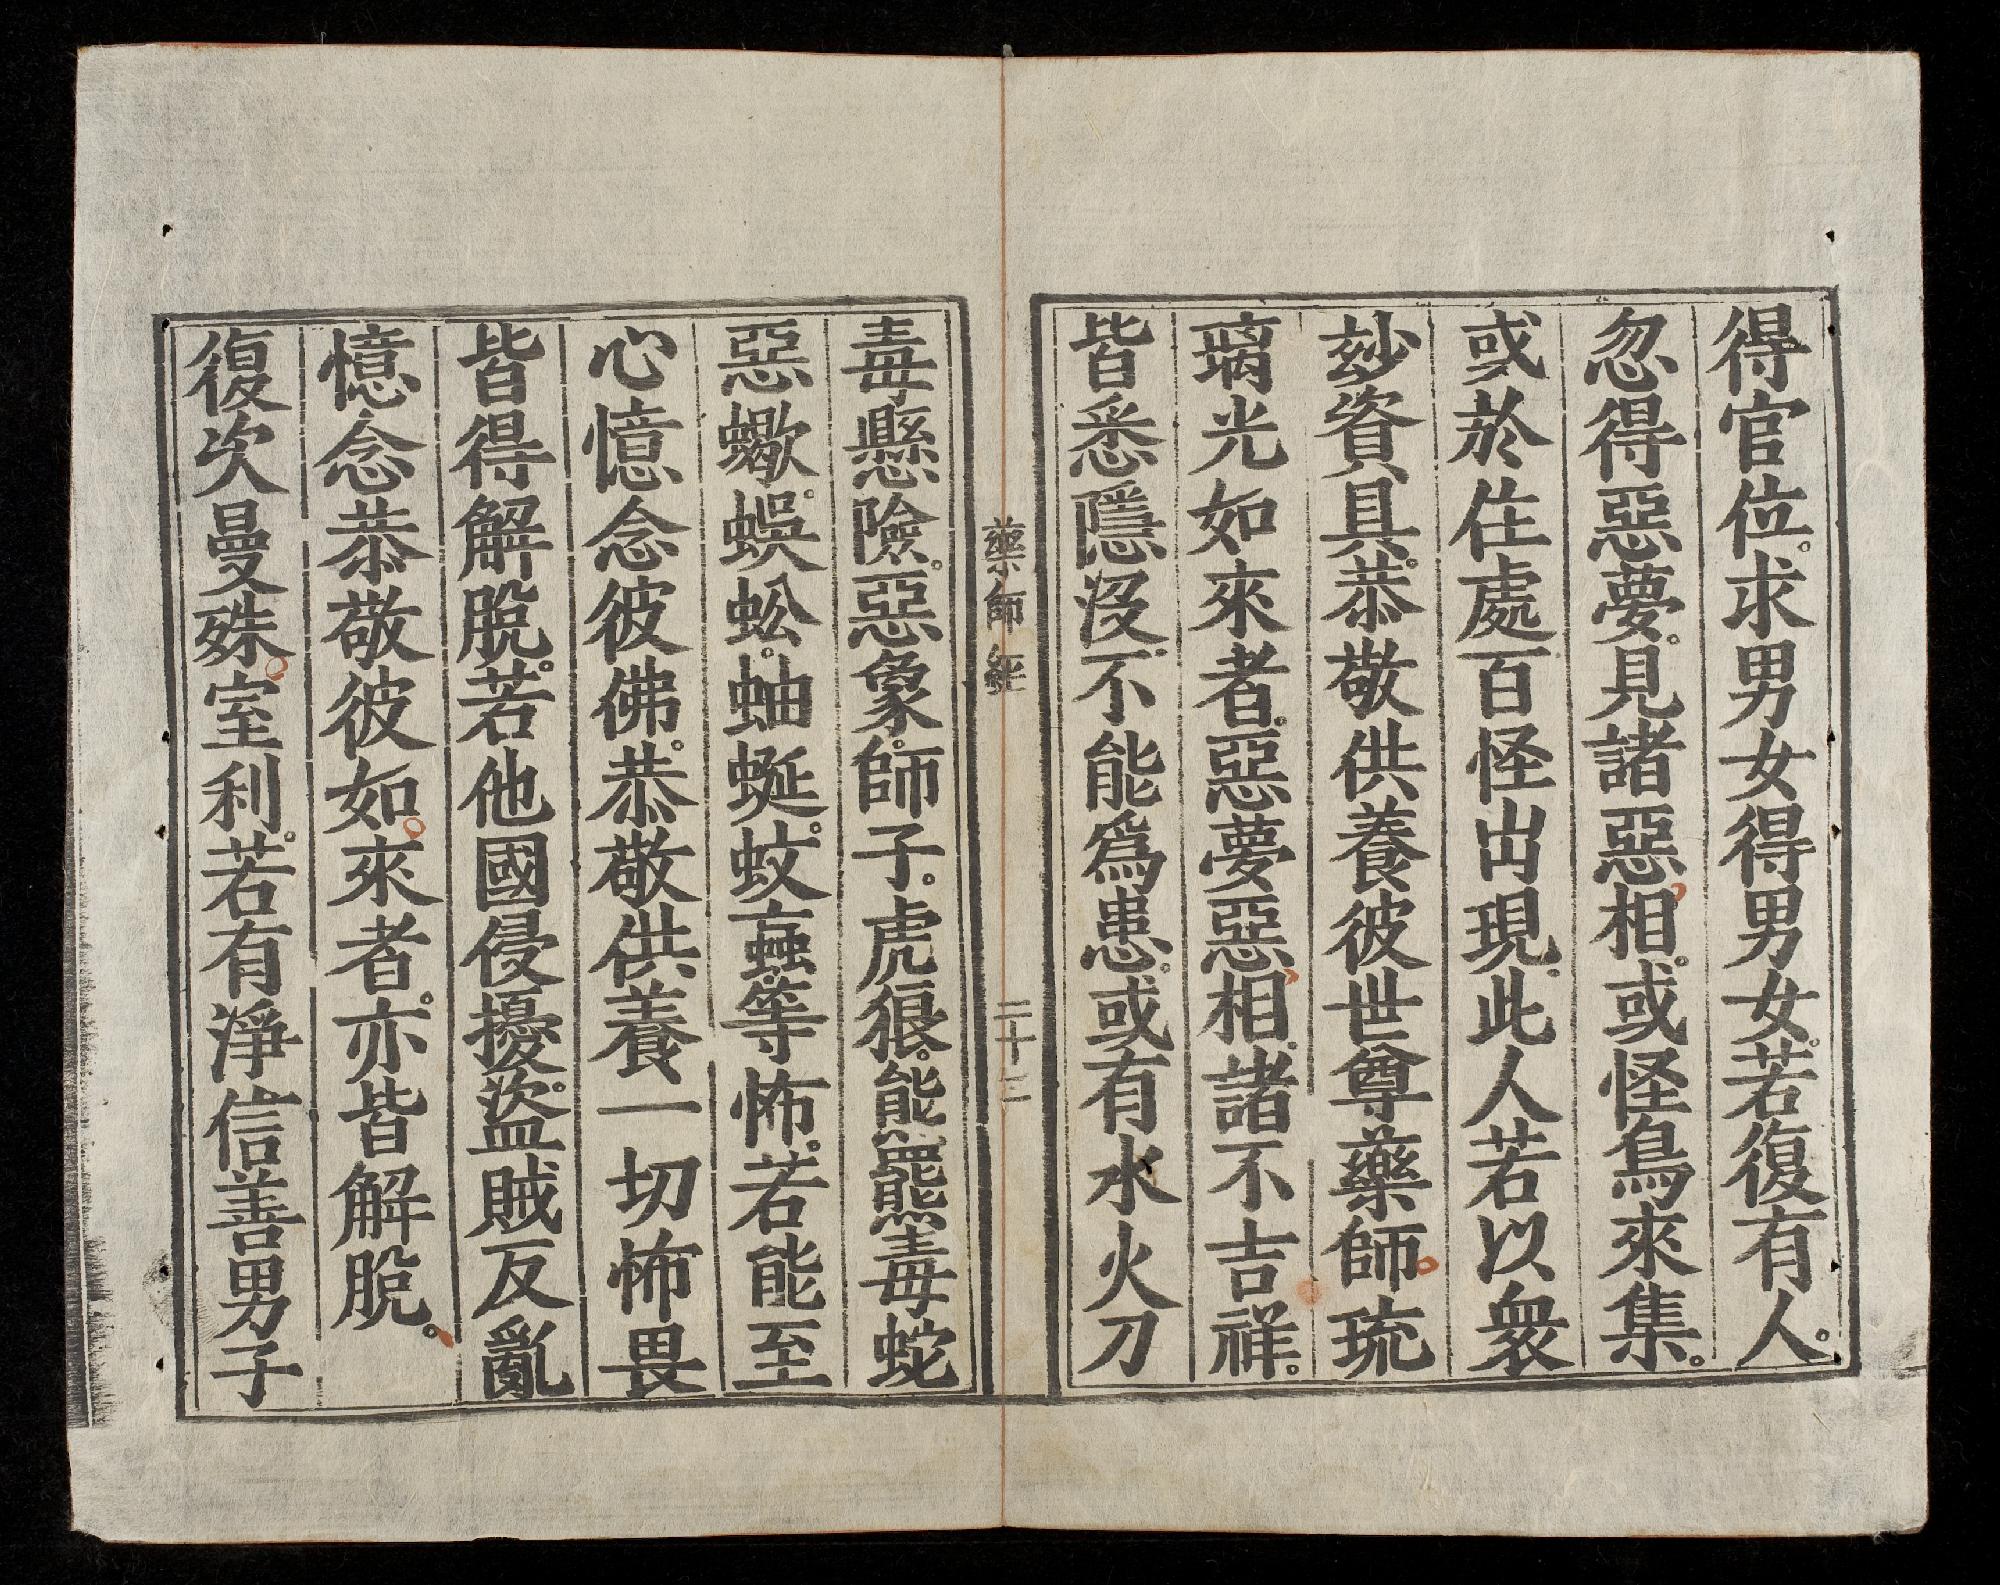 得官位。求男女得男女。若復有人。
忽得惡夢。見諸惡相。或怪鳥來集。
或於住處百怪出現。此人若以衆
玅資具。恭敬供養彼世尊藥師琉
璃光如來者。惡夢惡相。諸不吉祥。
皆悉隱沒。不能爲患。或有水火刀
藥師經
二十三
毒懸險。惡象。師子。虎狼。熊羆毒蛇
惡蠍。蜈蚣。蚰蜒。蚊䖟等怖。若能至
心憶念彼佛。恭敬供養一切怖畏
皆得解脫。若他國侵擾。盜賊反亂
憶念恭敬彼如來者。亦皆解脫。
復次曼殊室利。若有淨信善男子